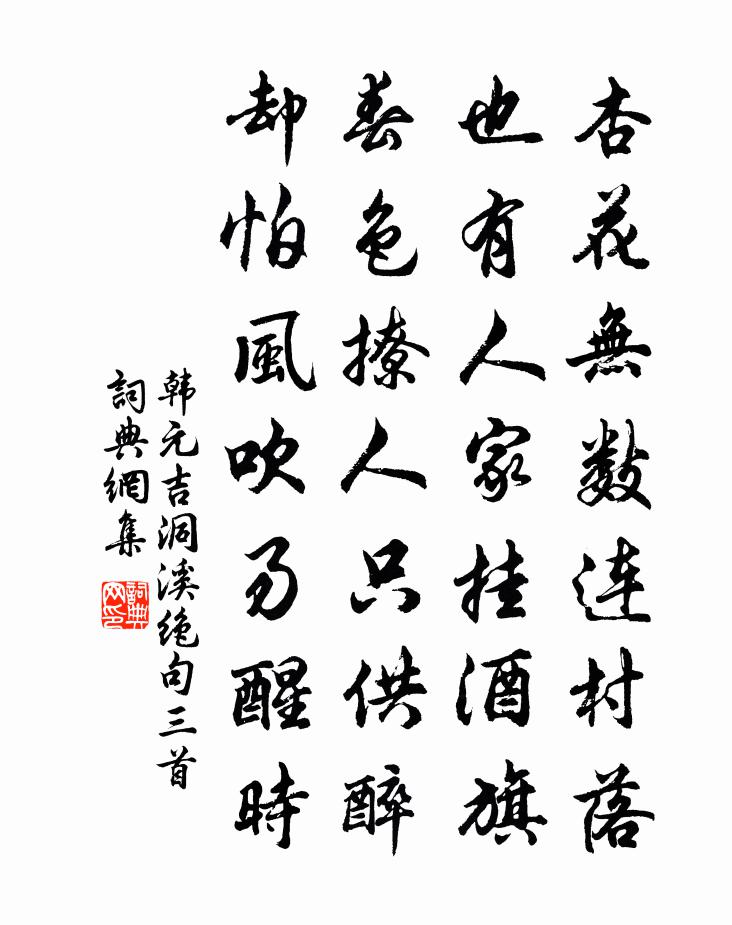 杏花無数连村落
也有人家挂酒旗
春色撩人只供醉
却怕風吹易醒時
韩元吉洞溪绝句三首
詞典網集
詞典网印